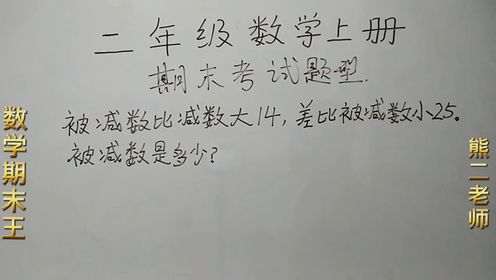 二年级数学上册
期末考试题型.
被减数比减数大14,差比被减数小25。
被减数是多少?
数学期末王
熊二老师